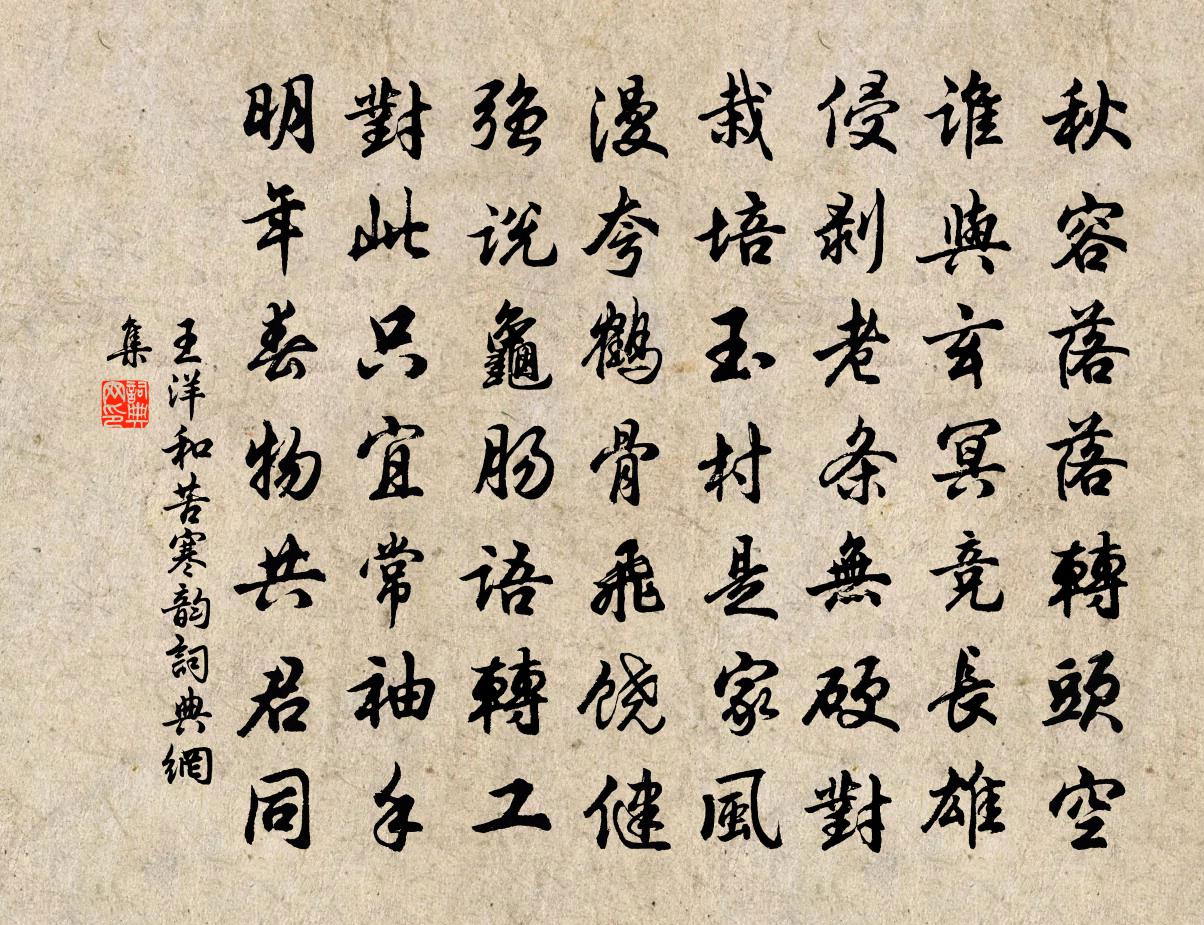 秋容落落轉頭空
谁與玄冥竞長雄
侵剥老条無硬對
栽培玉村是家風
漫夸鶴骨飛饶健
强说龜肠語轉工
對此只宜常袖手
明年春物共君同
王洋和苦寒韵詞典網
集
詞典網印